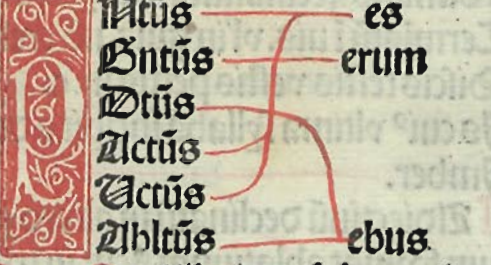 Ntus es
Gntūs erum
Dtūs
Actūs
Uctūs
Abltūs ebus